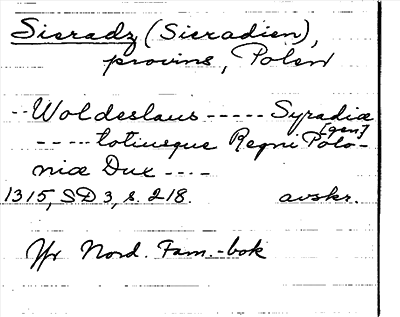 Sieradz (Sieradien),
provins, Polen
-- Woldeslaus ----- Syradiæ
[gen]
----- totiusque Regni Polo-
niæ Dux ----
1315, SD 3, s. 218. avskr.
Jfr Nord. Fam.-bok